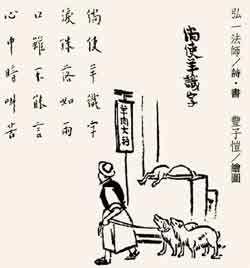 弘一法師／詩・書　豐子愷／繪圖
倘使羊識字
羊肉大
倘使羊識字
淚珠落如雨
口雖不能言
心中暗叫苦